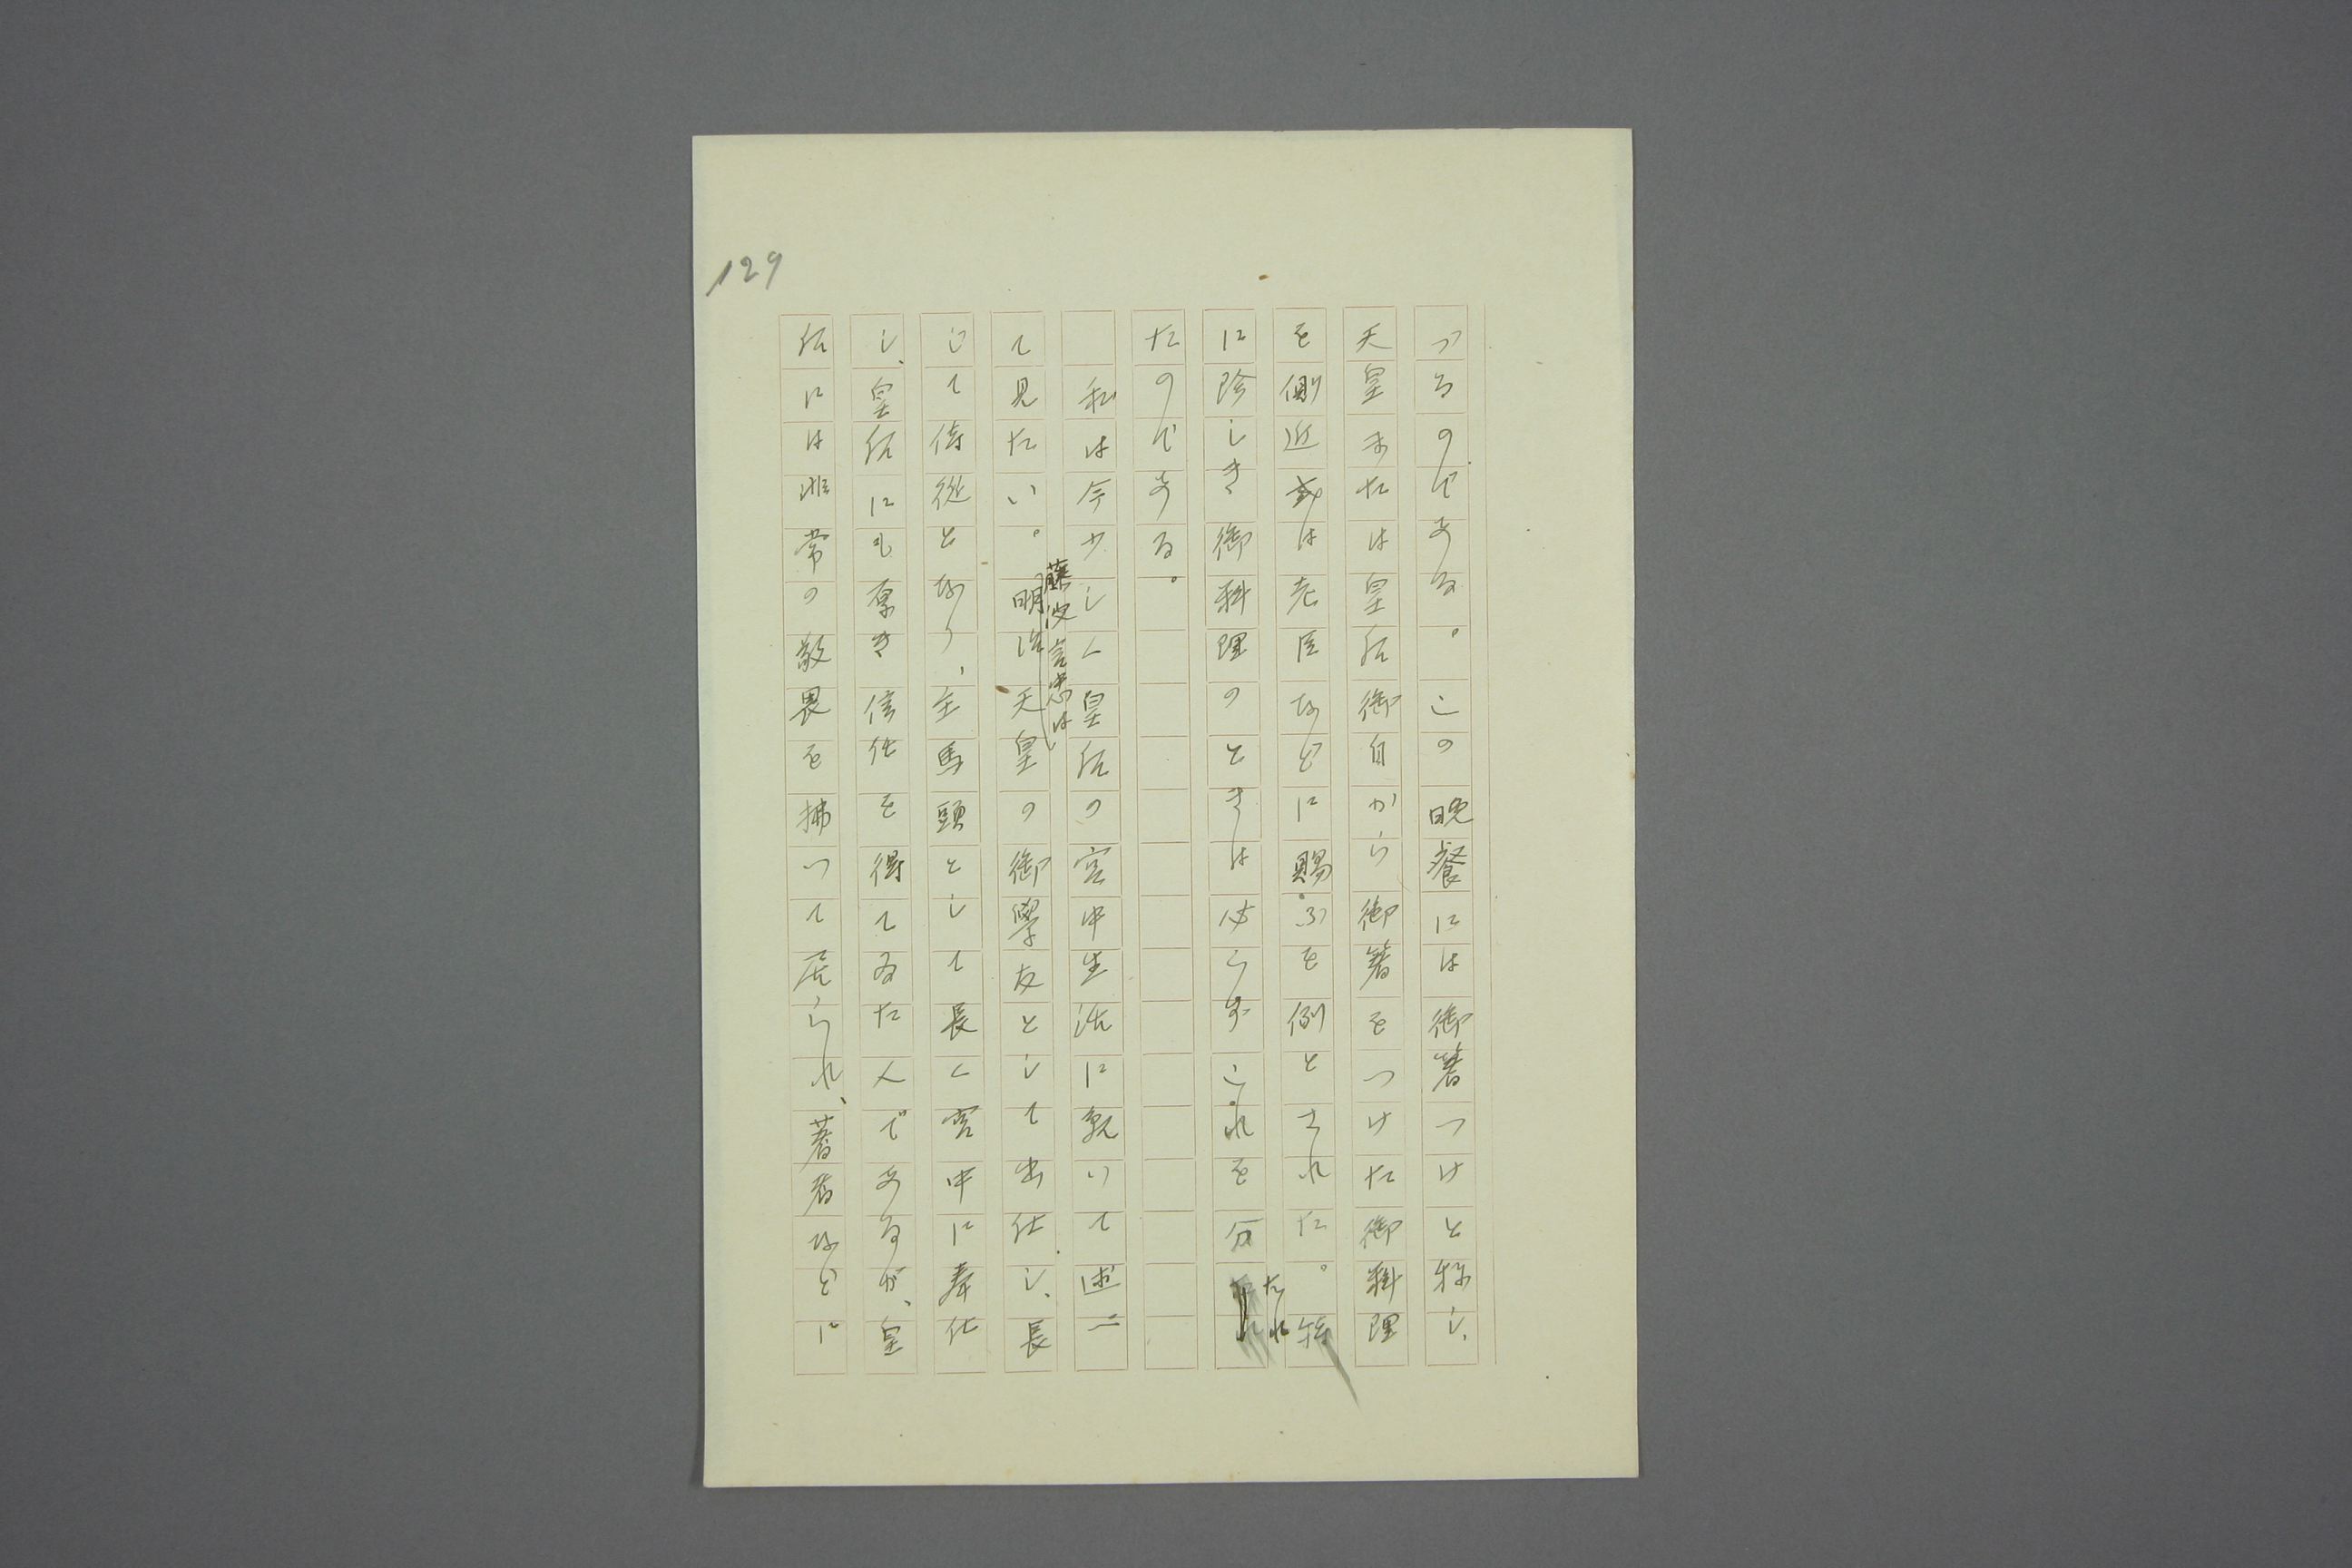 129
づるのである。この晩餐には御箸つけと称し、
天皇または皇后御自から御箸をつけた御料理
を側近或は老臣などに賜ふを例とされた。殊
に珍しき御料理のときは必らずこれを分たれ
たのである。
私は今少しく皇后の宮中生活に就いて述べ
て見たい。藤波言忠は明治天皇の御學友として出仕し、長
じて侍従となり、主馬頭として長く宮中に奉仕
し、皇后にも厚き信任を得てゐた人であるが、皇
后には非常の敬畏を拂つて居られ、著者などに